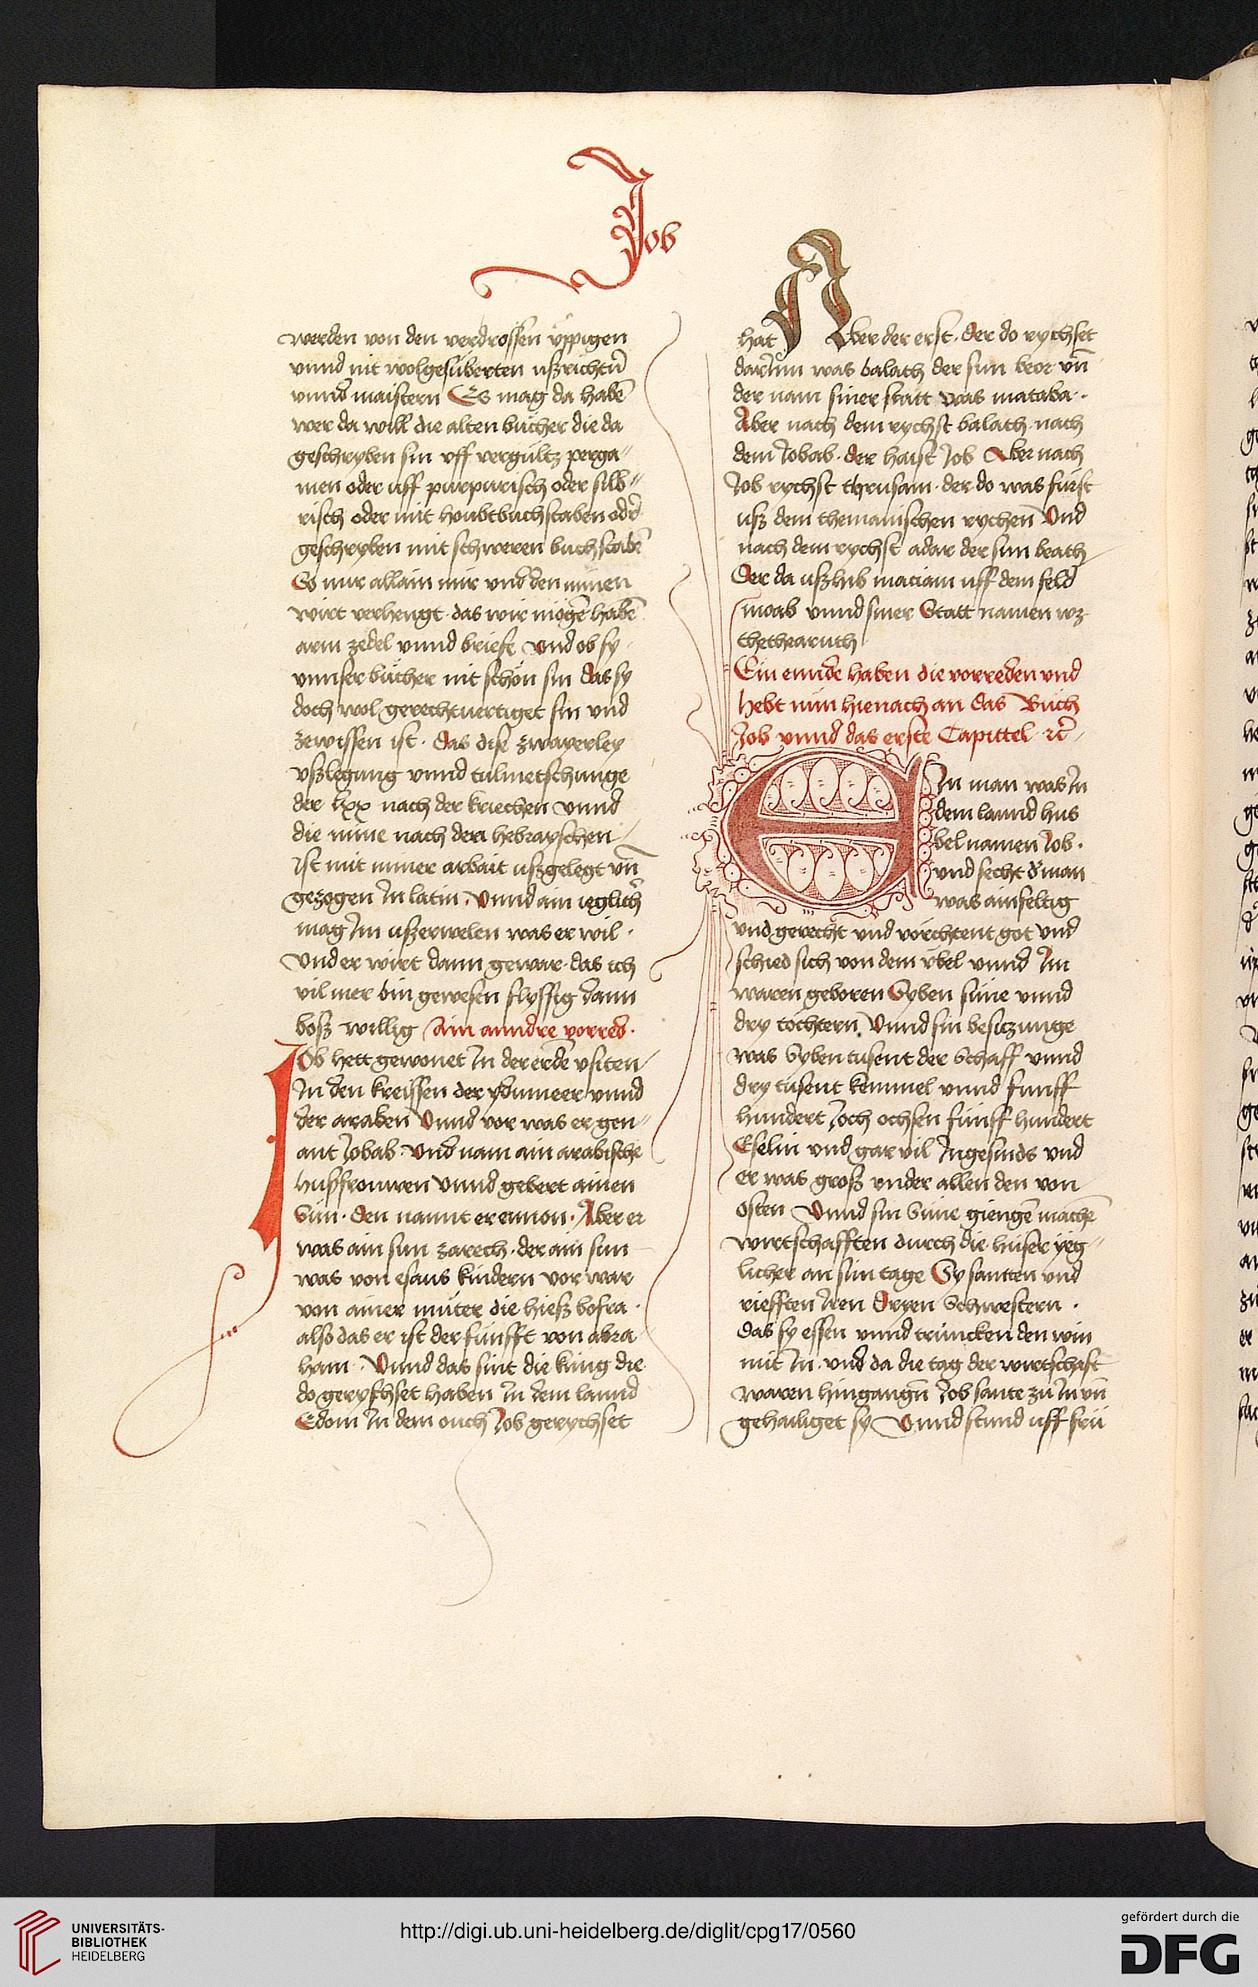 Job
werden von den verdrossen üppigen
vnnd nit wolgesüberten ußrichtu̅
vnnd maistern Es mag da habe̅
wer da will die alten bücher die da
geschryben sin vff vergültz perga„
men oder uff purpurisch oder silb„
risch oder mit houbtbuchstaben oder
geschryben mit schweren buchstabe̅
So nur allain mir vnd den minen
wirt verhengt· das wir möge̅ habe̅
arm zedel vnnd briefe vnd ob sy
vnnser bücher nit schön sin das sy
doch wol gerechtuertiget sin vnd
zewissen ist· das dise zwayerley
vßlegung vnnd tulmetschunge
der lxx nach der kriechen vnnd
die mine nach den hebrayschen
Ist mit miner arbait ußgelegt vn̅
gezogen In latin· Vnnd ain ieglicher
mag Im ußerwelen was er wil·
Vnd er wirt dann gewar· das ich
vil mer bin gewesen flyssig dann
boß willig Ain anndre vorred·
JOb hett gewonet In der erde̅ vsiten
In den kreissen der ydumeer vnnd
der araben Vnnd vor was er gen„
ant Jobab· Vnd nam ain arabische
hußfrouwen Vnnd gebert ainen
Sün· den nannt er ennon· Aber er
was ain sun zarech· der ain sun
was von esaus kindern vor war
von ainer müter die hieß bosra·
also das er ist der fünfft von abra
ham· Vnnd das sint die küng die
do gerychset haben In dem lannd
Edom In dem ouch Job gerychset
hat Aber der erst· der do rychset
darInn was balach der sun beor vn̅
der nam siner statt was mataba·
Aber nach dem rychst balach· nach
dem Jobab· der haist Job Aber nach
Job rychst thrusam· der do was fürst
uß dem themanischen rychen Und
nach dem rychst adar der sun beath
Der da ußhüb maciam uff dem feld
moab vnnd siner Statt namen wz
thethearuth
Ein ennde haben die vorreden vnd
hebt nün hienach an das Buch
Job vnnd das erste Capittel ·rc̅·
EIn man was In
dem lannd hus
bel namen Job·
vnd secht d' man
was ainfeltig
vnd gerecht vnd vörchtent got vnd
schied sich von dem übel vnnd Im
waren geboren Syben süne vnnd
dry töchtern Vnnd sin besitzunge
was Syben tusent der Schaff vnnd
dry tusent kemmel vnnd fünff
hundert Joch ochsen fünff hundert
Eselin vnd gar vil Ingesinds vnd
er was groß vnder allen den von
osten Vnnd sin Süne gienge̅ mache̅
wirtschafften durch die hüser yeg„
licher an sim tage Sy santten vnd
riefften Iren Dryen Schwestern·
das sy essen vnnd trüncken den win
mit In· vnd da die tag der wirtschaft
waren hingangn̅ Job sante zu In vn̅
gehailiget sy Vnnd stund uff frü
UNIVERSITÄTS-
BIBLIOTHEK
HEIDELBERG
http://digi.ub.uni-heidelberg.de/diglit/cpg17/0560
gefördert durch die
DFG